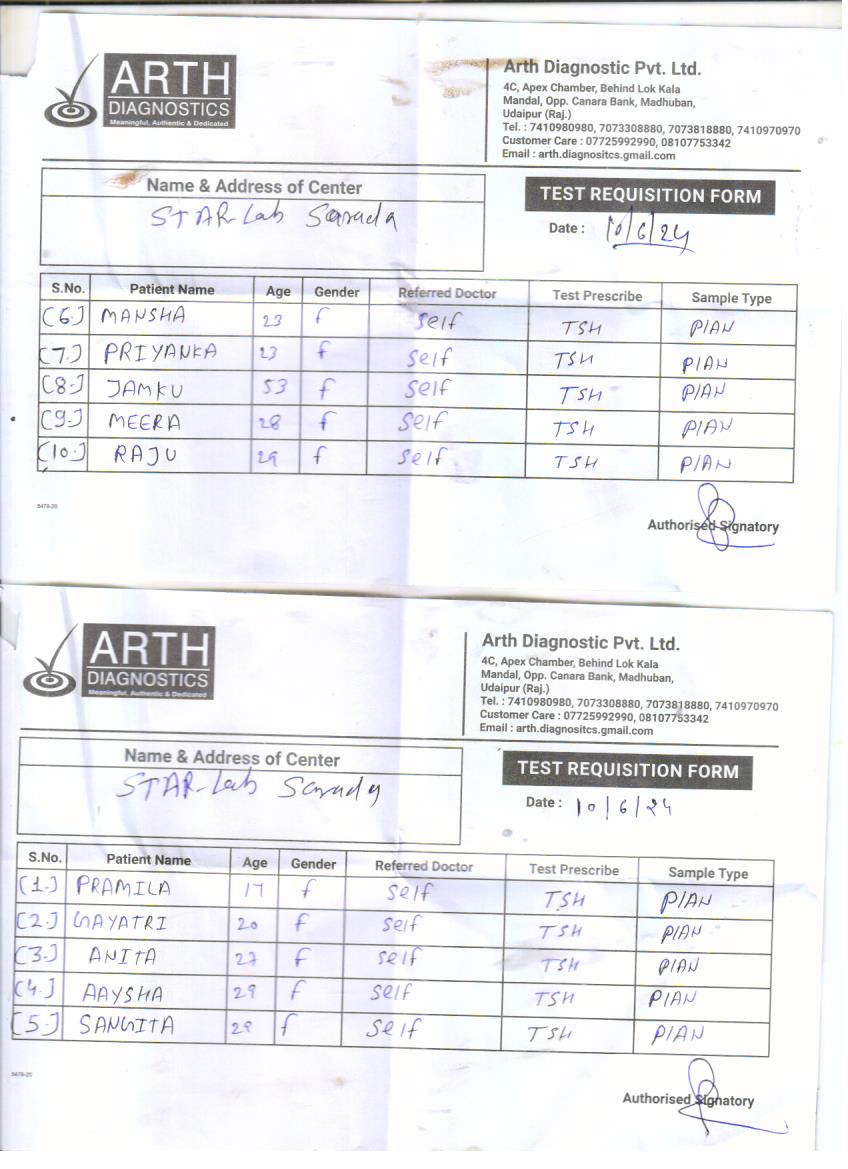 ARTH
DIAGNOSTICS
Meaningful, Authentic & Dedicated
Arth Diagnostic Pvt. Ltd.
4C, Apex Chamber, Behind Lok Kala
Mandal, Opp. Canara Bank, Madhuban,
Udaipur (Raj.)
Tel. : 7410980980, 7073308880, 7073818880, 7410970970
Customer Care : 07725992990, 08107753342
Email : arth.diagnositcs.gmail.com
Name & Address of Center
STAR-Lab Sarada
TEST REQUISITION FORM
Date : 10/6/24
S.No. Patient Name Age Gender Referred Doctor Test Prescribe Sample Type
(6.) MANSHA 23 f Self TSH PIAN
(7.) PRIYANKA 23 f Self TSH PIAN
(8.) JAMKU 53 f Self TSH PIAN
(9.) MEERA 28 f Self TSH PIAN
(10.) RAJU 29 f Self TSH PIAN
5478-20
Authorised Signatory
ARTH
DIAGNOSTICS
Meaningful, Authentic & Dedicated
Arth Diagnostic Pvt. Ltd.
4C, Apex Chamber, Behind Lok Kala
Mandal, Opp. Canara Bank, Madhuban,
Udaipur (Raj.)
Tel. : 7410980980, 7073308880, 7073818880, 7410970970
Customer Care : 07725992990, 08107753342
Email : arth.diagnositcs.gmail.com
Name & Address of Center
STAR-Lab Sarada
TEST REQUISITION FORM
Date : 10/6/24
S.No. Patient Name Age Gender Referred Doctor Test Prescribe Sample Type
(1.) PRAMILA 17 f Self TSH PIAN
(2.) GAYATRI 20 f Self TSH PIAN
(3.) ANITA 27 f Self TSH PIAN
(4.) AAYSHA 29 f Self TSH PIAN
(5.) SANGITA 28 f Self TSH PIAN
5478-20
Authorised Signatory